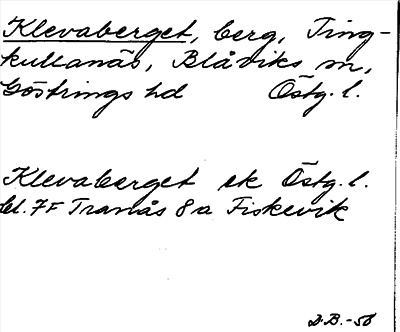 Klevaberget, berg, Ting-
kullanäs, Blåviks sn,
Göstrings hd Östg. l.
Klevaberget ek Östg. l.
bl. 7F Tranås 8a Fiskevik
D.B.-56